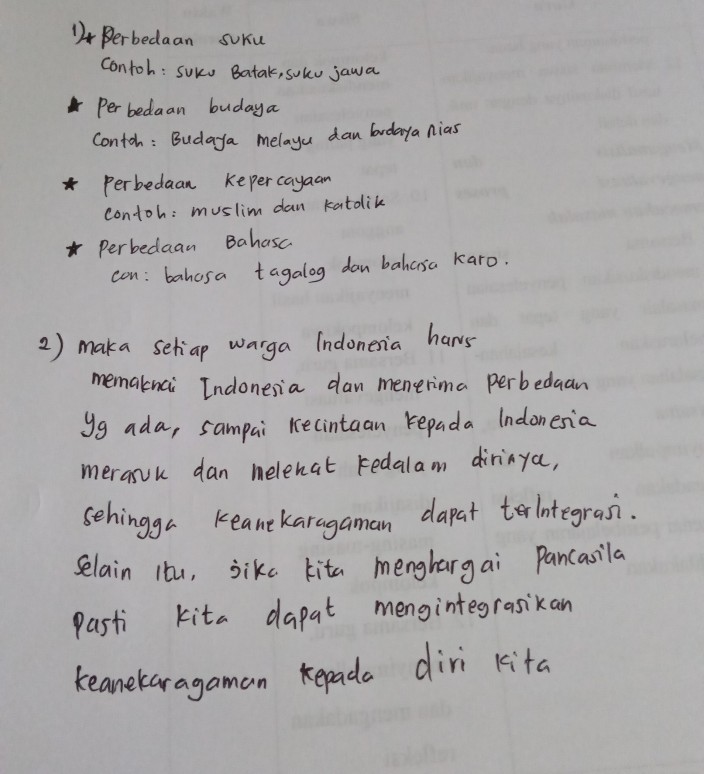 1) ★ Perbedaan suku
Contoh : suku Batak, suku jawa
★ Perbedaan budaya
Contoh : Budaya melayu dan budaya nias
★ Perbedaan kepercayaan
Contoh : muslim dan katolik
★ Perbedaan Bahasa
con : bahasa tagalog dan bahasa karo.
2) maka setiap warga Indonesia harus
memaknai Indonesia dan menerima perbedaan
yg ada, sampai kecintaan kepada Indonesia
merasuk dan melekat kedalam dirinya,
sehingga keanekaragaman dapat terIntegrasi.
Selain itu, jika kita menghargai Pancasila
pasti kita dapat mengintegrasikan
keanekaragaman kepada diri kita